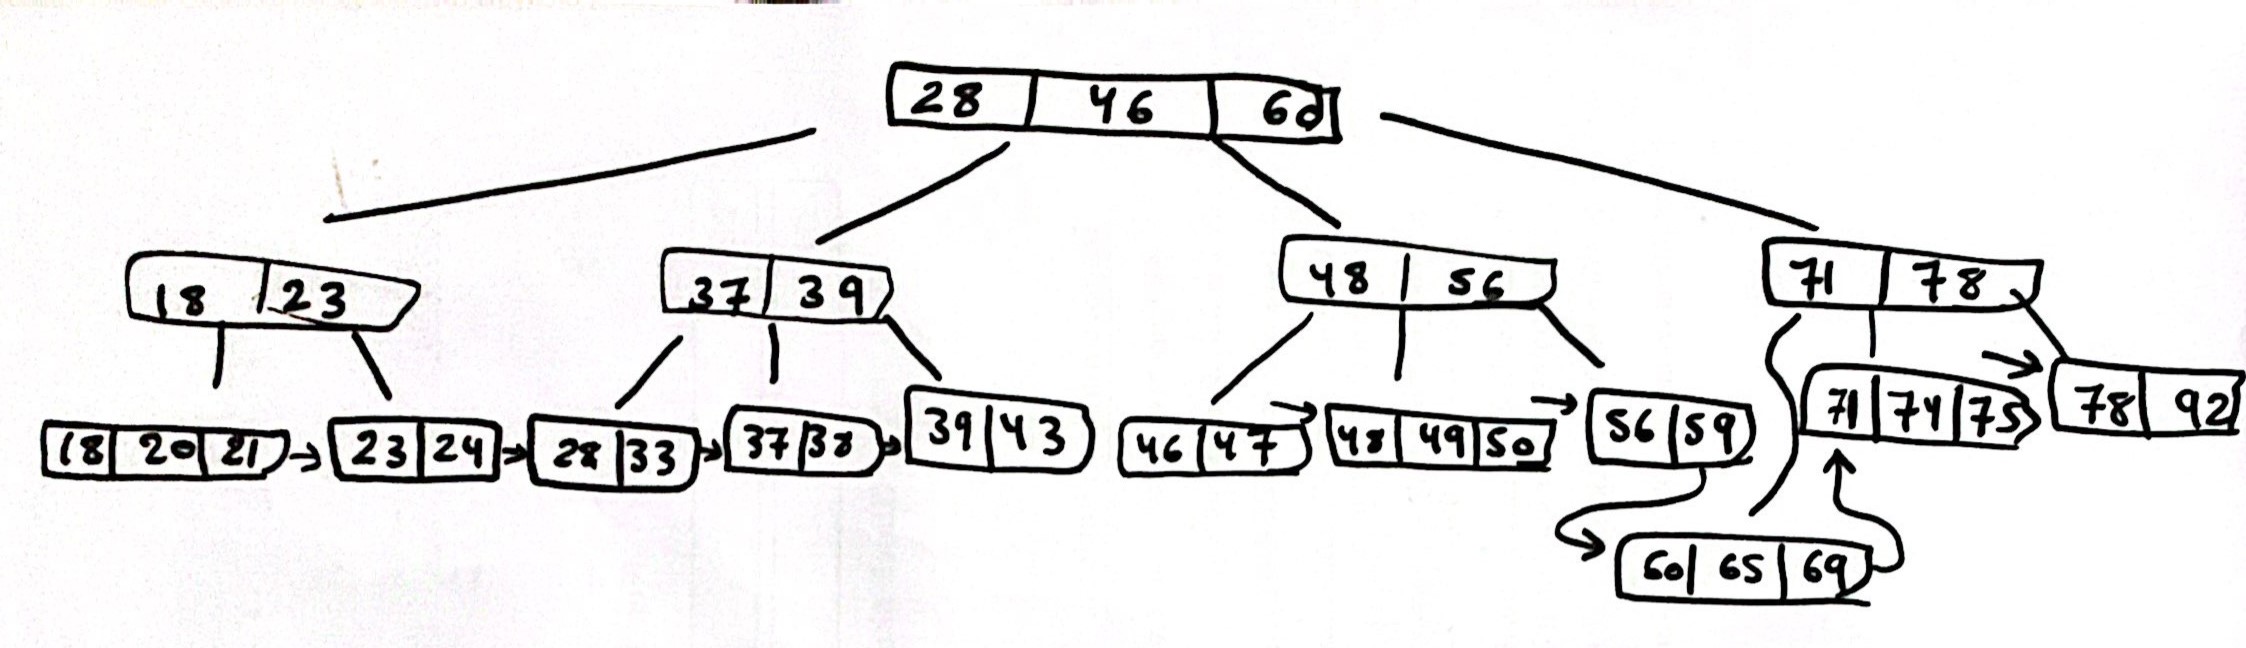 28 46 60
18 23
37 39
48 56
71 78
18 20 21
23 24
28 33
37 38
39 43
46 47
48 49 50
56 59
71 74 75
78 92
60 65 69